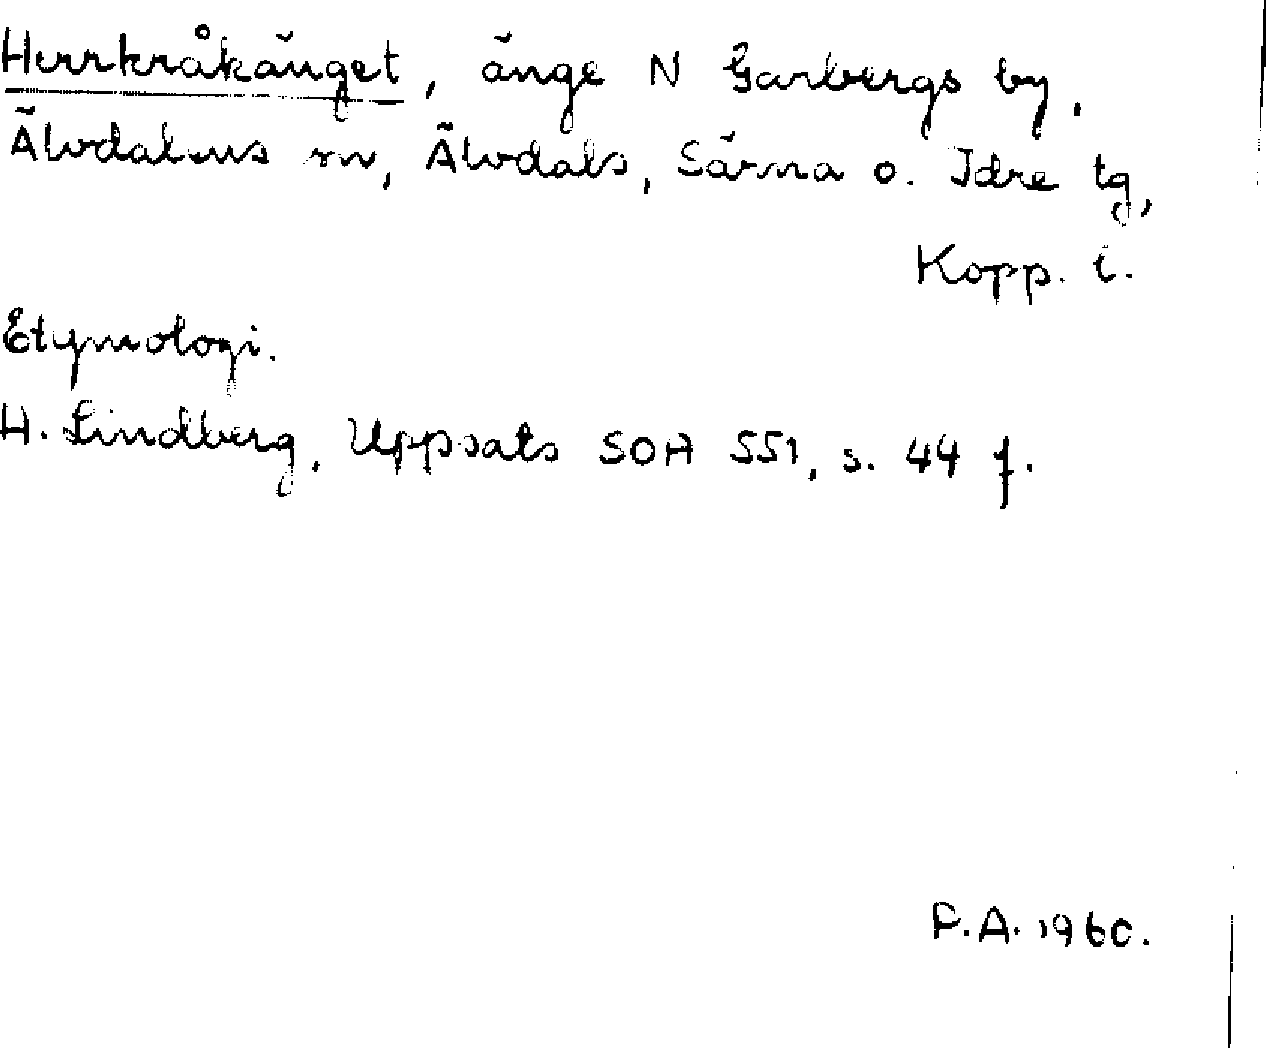 Herrkråkänget, änge N Garbergs by,
Älvdalens sn, Älvdals, Särna o. Idre tg,
Kopp. l.
Etymologi.
H. Lindberg, Uppsats SOA 551, s. 44 f.
P.A. 1960.